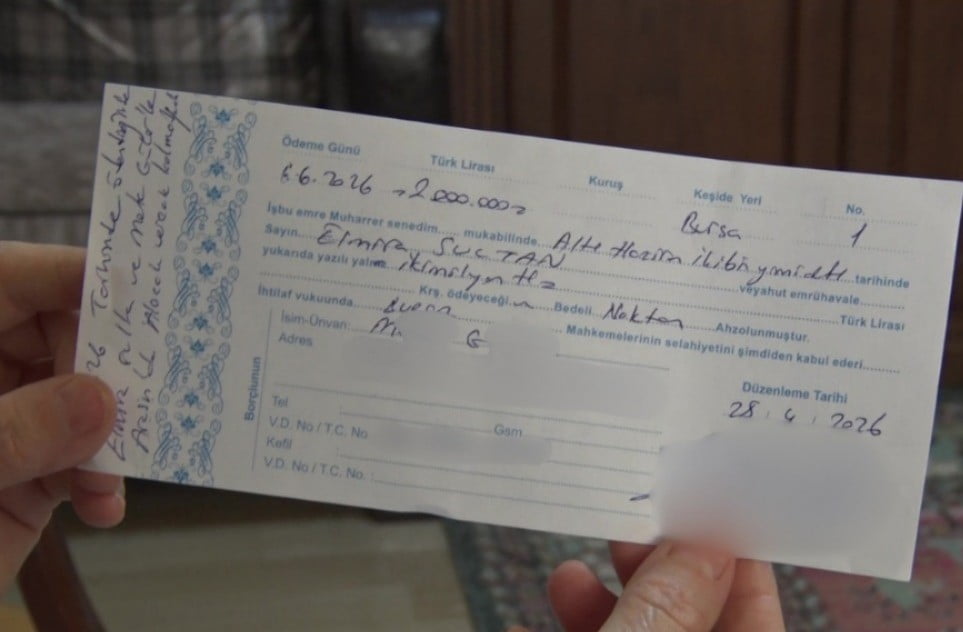 Ödeme Günü Türk Lirası Kuruş Keşide Yeri No.
6.6.2026 =2000.000= Bursa 1
İşbu emre Muharrer senedim..... mukabilinde Altı Haziran ikibin yirmialtı tarihinde
Sayın Elmira SULTAN veyahut emrühavale
yukarıda yazılı yalnız ikimilyon TL Türk Lirası
Krş. ödeyeceğim Bedeli Nakten Ahzolunmuştur.
İhtilaf vukuunda Bursa Mahkemelerinin selahiyetini şimdiden kabul ederi
Borçlunun
İsim-Ünvan:
Adres
Tel Gsm
V.D. No / T.C. No
Kefil
V.D. No / T.C. No. :
Düzenleme Tarihi
28.4.2026
26 Tarihinde
Elmira ve
Alacak verecek kalmayacak